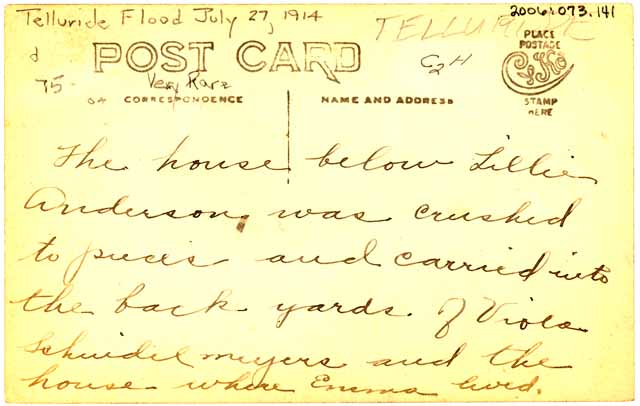 Telluride Flood July 27, 1914
TELLURIDE
2006.073.141
POST CARD
PLACE
POSTAGE
STAMP
HERE
75-
Very Rare
C2H
CORRESPONDENCE
NAME AND ADDRESS
The house below Lillie
Anderson, was crushed
to pieces and carried into
the back yards of Viola
Schuidelmeyers and the
house where Emma lived.